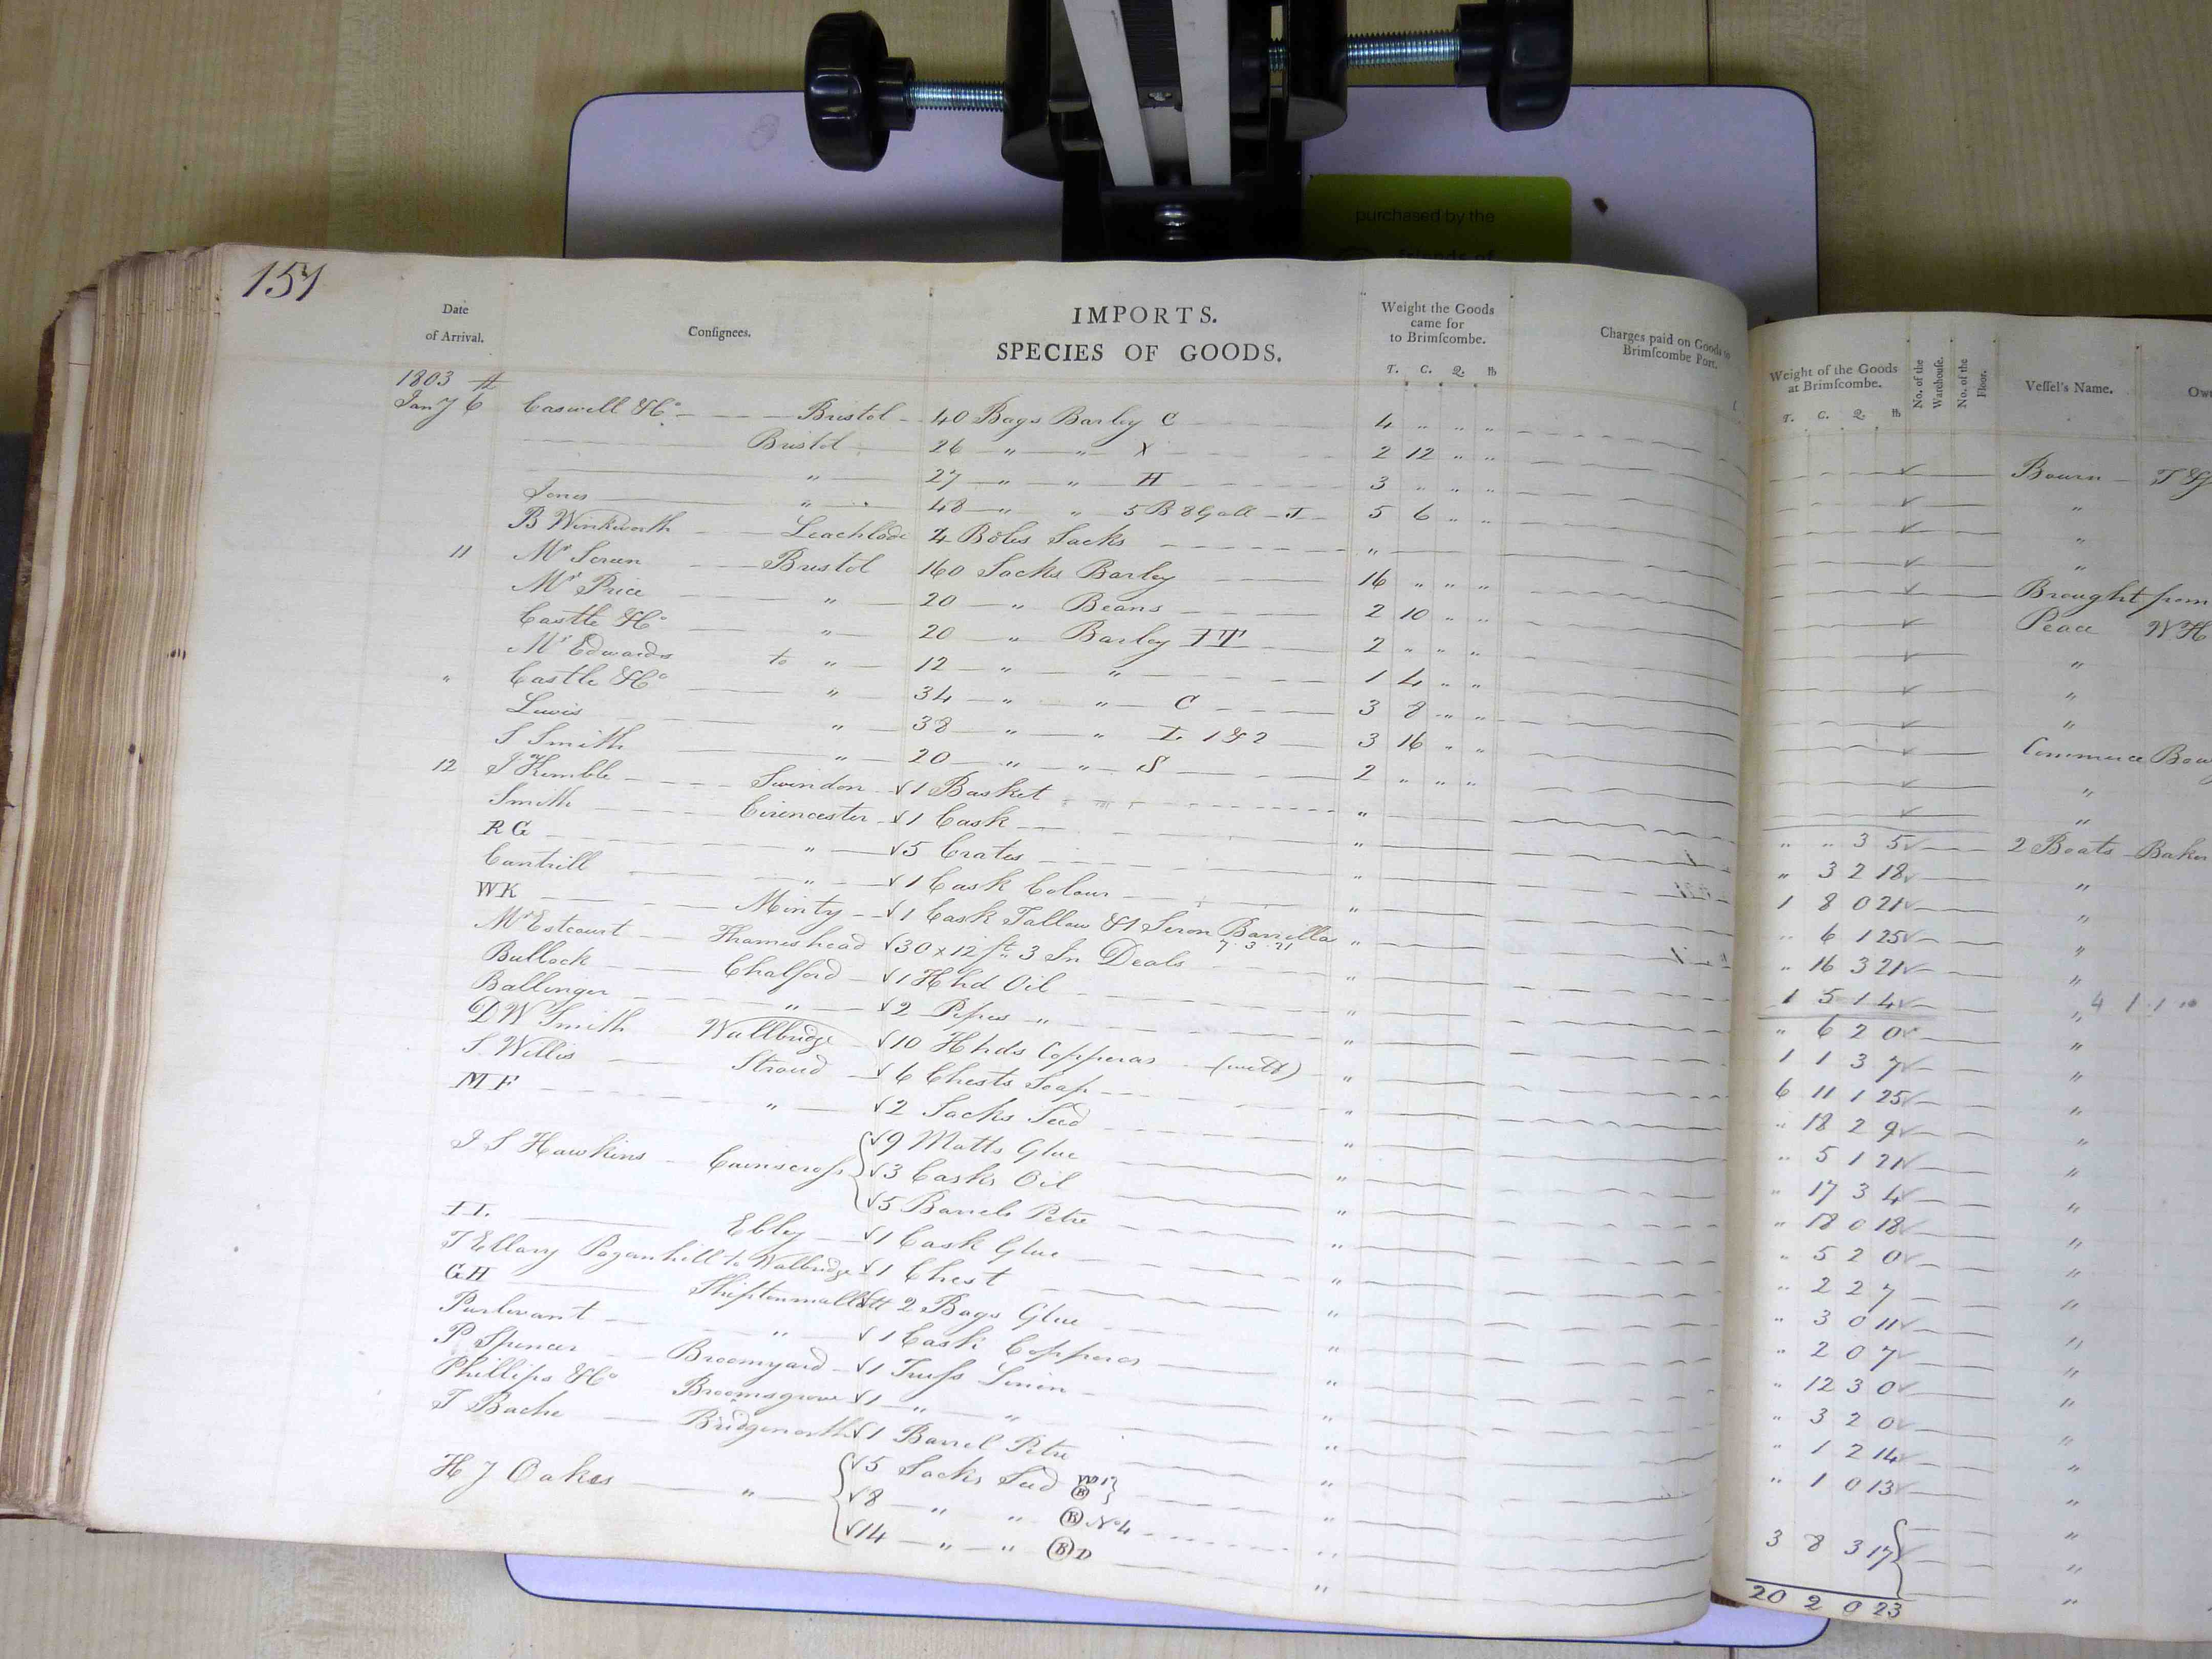 purchased by the
friends of
151
Date of Arrival. Consignees. IMPORTS. SPECIES OF GOODS. Weight the Goods came for to Brimscombe. T. C. Q. lb Charges paid on Goods to Brimscombe Port. Weight of the Goods at Brimscombe. T. C. Q. lb No. of the Warehouse. No. of the Floor. Vessel's Name. Own
1803
Jany 6th Caswell & Co Bristol 40 Bags Barley C 4 " " " Bourn T
Bristol 26 " " X 2 12 " " "
" 27 " " H 3 " " " "
Jones " 48 " " 5 B 8 Gall J 5 6 " " "
B Winkworth Leachlade 4 Boles Sacks " Brought from
11 Mr Bristol 160 Sacks Barley 16 " " " Peace WH
Mr Price " 20 " Beans 2 10 " " "
Castle & Co " 20 " Barley IT 2 " " " "
Mr Edwards to " 12 " " 1 4 " " "
" Castle & Co " 34 " " C 3 8 " " Commerce
Lewis " 38 " " L 1 & 2 3 16 " " "
S Smith " 20 " " S 2 " " " "
12 J Kimble Swindon √1 Basket " " " 3 5 2 Boats Baker
Smith Cirencester √1 Cask " " 3 2 18 "
RG " √5 Crates " 1 8 0 21 "
Cantrill " √1 Cask Colour " " 6 1 25 "
WK Minty √1 Cask Tallow & 1 Seron Barrilla " " 16 3 21 "
7. 3. 21
Mr Estcourt Thameshead √30 x 12 ft 3 In Deals " 1 5 1 4 " 4 1 1 10
Bullock Chalford √1 Hhd Oil " " 6 2 0 "
Ballinger " √2 Pipes " " 1 1 3 7 "
D W Smith Wallbridge √10 Hhds Copperas " 6 11 1 25 "
S Willis Stroud √6 Chests Soap " " 18 2 9 "
MF " √2 Sacks Seed " " 5 1 21 "
J S Hawkins Cainscross √9 Matts Glue " " 17 3 4 "
√3 Casks Oil " " 18 0 18 "
√5 Barrels Petre " " 5 2 0 "
II. Ebley √1 Cask Glue " " 2 2 7 "
T Ellary Paganhill to Walbridge √1 Chest " " 3 0 11 "
GH Shiptonmallett √2 Bags Glue " " 2 0 7 "
Purlevant " √1 Cask Copperas " " 12 3 0 "
P Spencer Broomyard √1 Truss Linin " " 3 2 0 "
Phillips & Co Broomsgrove √1 " " " " 1 2 14 "
T Bache Bridgenorth √1 Barrel Petre " " 1 0 13 "
H J Oakes " √5 Sacks Seed B " "
√8 " " B No 4 " 3 8 3 17 "
√14 " " B D " "
20 2 0 23